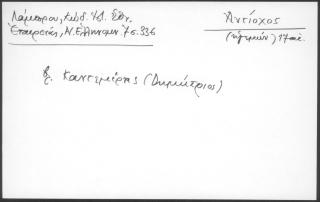 Λάμπρου, Κώδ. Ἱστ. Ἐθν.
Ἑταιρείας, Ν. Ἑλληνομν. 7 σ. 336
Ἀντίοχος
(ἡγεμών) 17 αἰ.
β. Καντεμίρης (Δημήτριος)